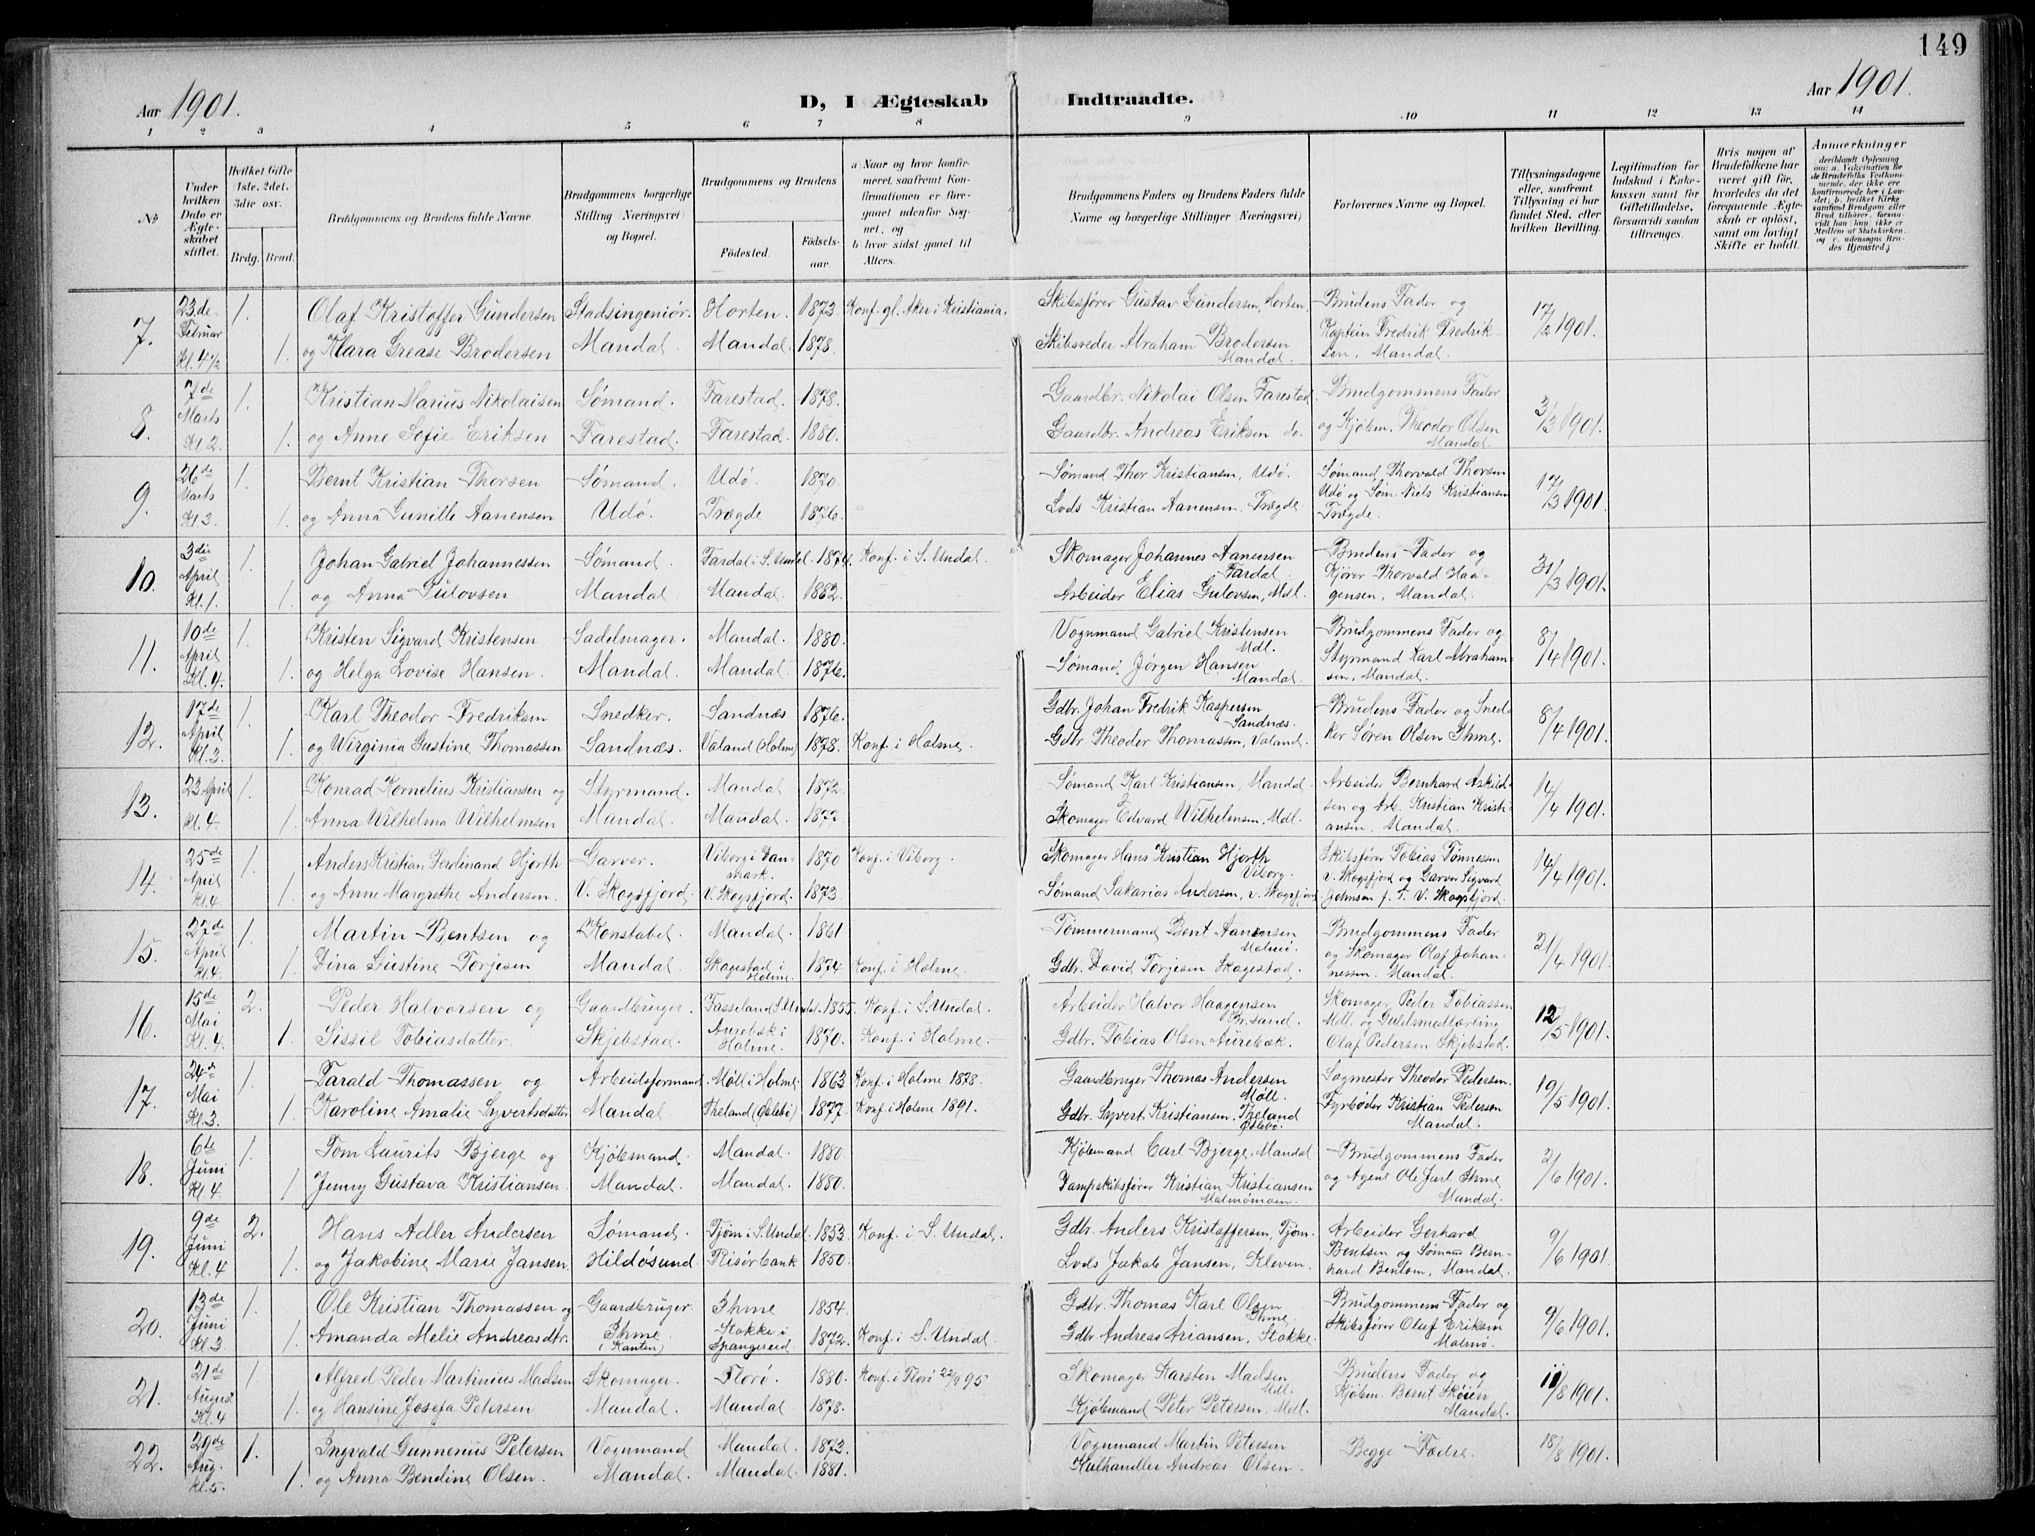 149
Aar 1901.
D, I Ægteskab Indtraadte.
Aar 1901.
1 2 3 4 5 6 7 8 9 10 11 12 13 14
№
Under hvilken Dato er Ægteskabet stiftet.
Hvilket Gifte 1ste, 2det, 3die osv.
Brdg. Brud.
Brudgommens og Brudens fulde Navne
Brudgommens borgerlige Stilling Næringsvei og Bopæl.
Brudgommens og Brudens
Födested. Födselsaar.
a Naar og hvor konfirmeret, saafremt Konfirmationen er foregaaet udenfor Sognet, og
b hvor sidst gaaet til Alters.
Brudgommens Faders og Brudens Faders fulde Navne og borgerlige Stillinger Næringsvei)
Forlovernes Navne og Bopæl.
Tillysningsdagene eller, saafremt Tillysning ei har fundet Sted, efter hvilken Bevilling.
Legitimation for Indskud i Enkekassen samt for Giftetilladelse, forsaavidt saadan tiltrænges.
Hvis nogen af Brudefolkene har været gift før, hvorledes da det foregaaende Ægteskab er opløst, samt om lovligt Skifte er holdt.
Anmærkninger
7. 23de Februar Kl. 4½ 1. Olaf Kristoffer Gundersen Stadsingeniör. Horten. 1873 Konf. gl. Aker i Kristiania. Skibsfører Gustav Gundersen, Horten. Brudens Fader og 17/2 1901.
1. og Klara Grease Brodersen Mandal. Mandal. 1878. Skibsreder Abraham Brodersen Mandal. Kaptein Fredrik Fredriksen, Mandal.
8. 7de Marts Kl. 2. 1. Kristian Marius Nikolaisen Sømand. Farestad. 1878. Gaardbr. Nikolai Olsen Farestad. Brudgommens Fader 3/3 1901.
1. og Anne Sofie Eriksen Farestad. Farestad. 1880. Gaardbr. Andreas Eriksen do. og Kjøbm. Theodor Olsen Mandal.
9. 26de Marts Kl. 3. 1. Bernt Kristian Thorsen Sømand. Udö. 1870. Sømand Thor Kristiansen, Udö. Sømand Thorvald Thorsen 17/3 1901.
1. og Anna Gunille Aanensen Udö. Trægde 1876. Lods Kristian Aanensen, Trægde. Udö og Søm. Niels Kristiansen Trægde.
10. 3die April Kl. 1. 1. Johan Gabriel Johannessen Sømand. Fardal i S. Undal. 1874. Konf. i S. Undal. Skomager Johannes Aanensen Fardal. Brudens Fader og 31/3 1901.
1. og Anna Gulovsen Mandal. Mandal. 1882. Arbeider Elias Gulovsen, Mdl. Kjører Thorvald Haagensen, Mandal.
11. 10de April Kl. 4. 1. Kristen Sigvard Kristensen Sadelmager. Mandal. 1880. Vognmand Gabriel Kristensen Mdl. Brudgommens Fader og 8/4 1901.
1. og Helga Lovise Hansen. Mandal. Mandal. 1876. Sømand Jørgen Hansen Mandal. Styrmand Karl Abrahamsen, Mandal.
12. 17de April Kl. 3. 1. Karl Theodor Fredriksen Snedker. Sandnæs 1876. Gdbr. Johan Fredrik Kaspersen Sandnæs. Brudens Fader og Snedker 8/4 1901.
1. og Wirginia Gustine Thomassen Sandnæs. Valand (Holme) 1878. Konf. i Holme. Gdbr. Theodor Thomassen, Valand. Søren Olsen Ihme.
13. 23 April Kl. 4. 1. Konrad Kornelius Kristiansen og Styrmand. Mandal. 1872. Sømand Karl Kristiansen, Mandal. Arbeider Bernhard Askildsen 14/4 1901.
1. Anna Wilhelma Wilhelmsen Mandal. Mandal. 1877. Skomager Edvard Wilhelmsen, Mdl. og Arb. Kristian Kristiansen, Mandal.
14. 25de April Kl. 4. 1. Anders Kristian Ferdinand Hjorth Garver. Viborg i Danmark. 1870 Konf. i Viborg. Skomager Hans Kristian Hjorth Viborg. Skibsfører Tobias Tønnessen 14/4 1901.
1. og Anne Margrethe Andersen. V. Skogsfjord. V. Skogsfjord. 1873. Sømand Sakarias Andersen, v. Skogsfjord v. Skogsfjord og Garver Sigvard Johnsen f. T. V. Skogsfjord.
15. 27de April Kl. 4. 1. Martin Bentsen og Konstabel. Mandal. 1861 Tømmermand Bent Aanensen Malmø. Brudgommens Fader 21/4 1901.
1. Dina Gustine Torjesen Mandal. Skagestad i Holme. 1874 Konf. i Holme. Gdbr. David Torjesen Skagestad. og Skomager Olaf Johannessen. Mandal.
16. 15de Mai Kl. 4. 2. Peder Halvorsen og Gaardbruger. Fasseland S. Undal. 1855. Konf. i S. Undal. Arbeider Halvor Haagensen Kr.sand. Skomager Peder Tobiassen 12/5 1901.
1. Sissil Tobiasdatter. Skjebstad. Aurebæk i Holme. 1870. Konf. i Holme. Gdbr. Tobias Olsen Aurebæk. Mdl. og Guldsmedlærling Olaf Pedersen Skjebstad.
17. 24de Mai Kl. 3. 1. Tarald Thomassen og Arbeidsformand. Møll i Holme. 1863 Konf. i Holme 1878. Gaardbruger Thomas Andersen Møll. Sagmester Theodor Pedersen. 19/5 1901.
1. Karoline Amalie Syvertsdatter Mandal. Theland (Øslebö) 1877. Konf. i Holme 1891. Gdbr. Syvert Kristiansen, Theland Øslebø. Fyrbøder Kristian Pedersen Mandal.
18. 6te Juni Kl. 4 1. Tom Laurits Bjerge og Kjøbmand. Mandal. 1880 Kjøbmand Carl Bjerge, Mandal Brudgommens Fader 2/6 1901.
1 Jenny Gustava Kristiansen. Mandal. Mandal. 1880. Dampskibsfører Kristian Kristiansen Malmømoen. og Agent Ole Juel Ihme Mandal.
19. 9de Juni Kl. 4 2. Hans Adler Andersen Sømand. Tjøm i S. Undal. 1853 Konf. i S. Undal. Gdbr. Anders Kristoffersen, Tjøm. Arbeider Gerhard 9/6 1901.
1. og Jakobine Marie Jansen Hildøsund. Risørbank 1850. Lods Jakob Jansen, Kleven. Bentsen og Sømand Bernhard Bentsen, Mandal.
20. 13de Juni Kl. 3 1. Ole Kristian Thomassen og Gaardbruger Ihme 1854. Gdbr. Thomas Karl Olsen Ihme. Brudgommens Fader og 9/6 1901.
1. Amanda Melie Andreasdtr. Ihme (i Kanten) Stokke i Spangereid. 1872. Konf. i S. Undal. Gdbr. Andreas Ariansen, Stokke. Skibsfører Oluf Eriksen Malmø.
21. 21de August Kl. 4 1 Alfred Peder Martinius Madsen Skomager. Florö. 1880. Konf. i Florö 22/9 95 Skomager Karsten Madsen Mdl. Brudens Fader og 11/8 1901.
1. og Hansine Josefa Petersen Mandal. Mandal 1878. Kjøbmand Peter Petersen, Mdl. Kjøbm. Bernt Skøien Mandal.
22. 29de Aug. Kl. 5. 1. Ingvald Gunnerius Petersen Vognmand Mandal. 1873. Vognmand Martin Petersen Begge Fædre. 18/8 1901.
1. og Anna Bendine Olsen. Mandal. Mandal. 1881. Kulhandler Andreas Olsen.